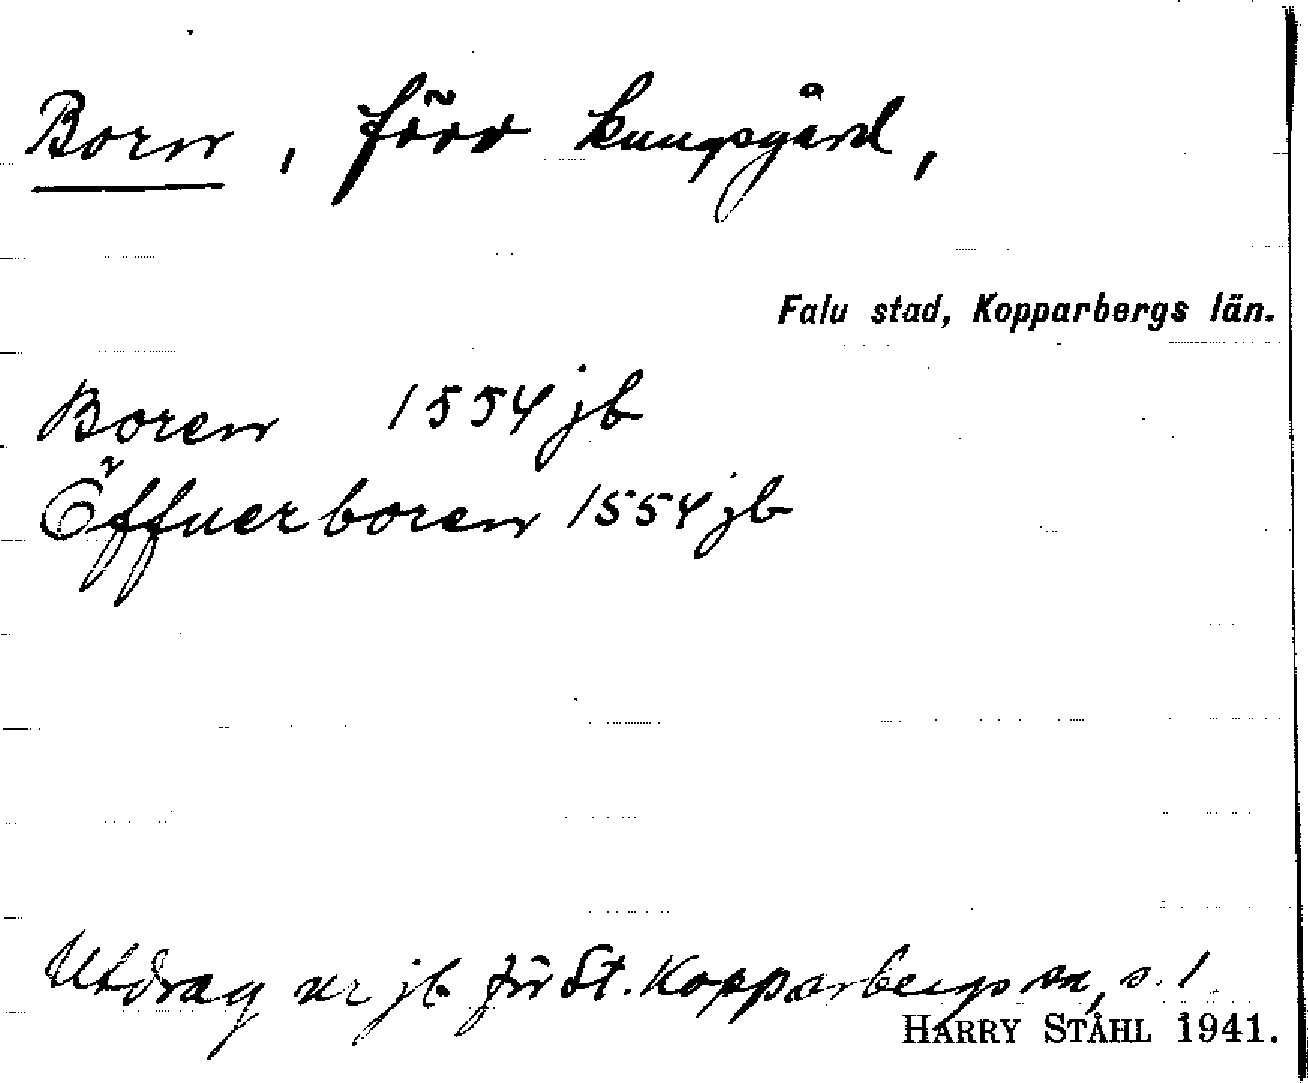 Born, förr kungsgård,
Falu stad, Kopparbergs län.
Boren 1554 jb
Öffuerboren 1554 jb
Utdrag ur jb för St. Kopparbergs sn, s. 1.
HARRY STÅHL 1941.